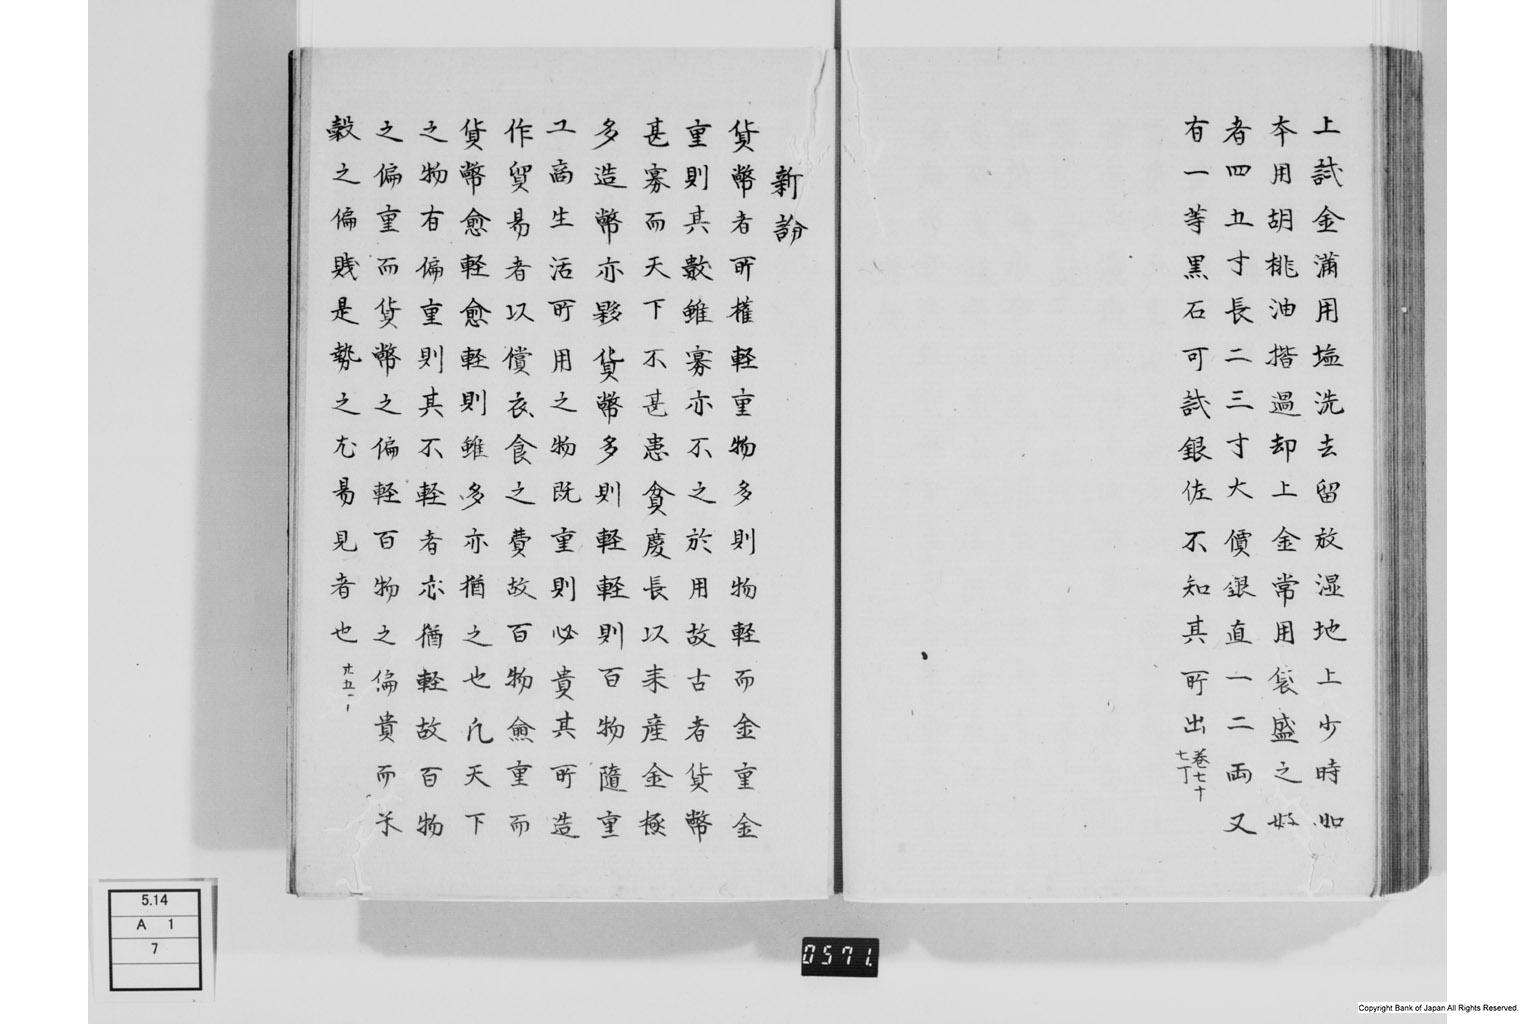 上試金滿用塩洗去留放湿地上少時如
夲用胡桃油揩過却上金常用袋盛之好
者四五寸長二三寸大價銀直一二両又
有一等黒石可試銀佐不知其所出
卷七十
七丁
新論
貨幣者所權軽重物多則物軽而金重金
重則其數雖寡亦不之於用故古者貨幣
甚寡而天下不甚患貧慶長以来産金極
多造幣亦夥貨幣多則軽軽則百物隨重
工商生活所用之物既重則必貴其所造
作貿易者以償衣食之費故百物愈重而
貨幣愈軽愈軽則雖多亦猶之也凡天下
之物有偏重則其不軽者亦猶軽故百物
之偏重而貨幣之偏軽百物之偏貴而米
穀之偏賎是勢之尤易見者也
5.14
A 1
7
0571.
Copyright Bank of Japan All Rights Reserved.